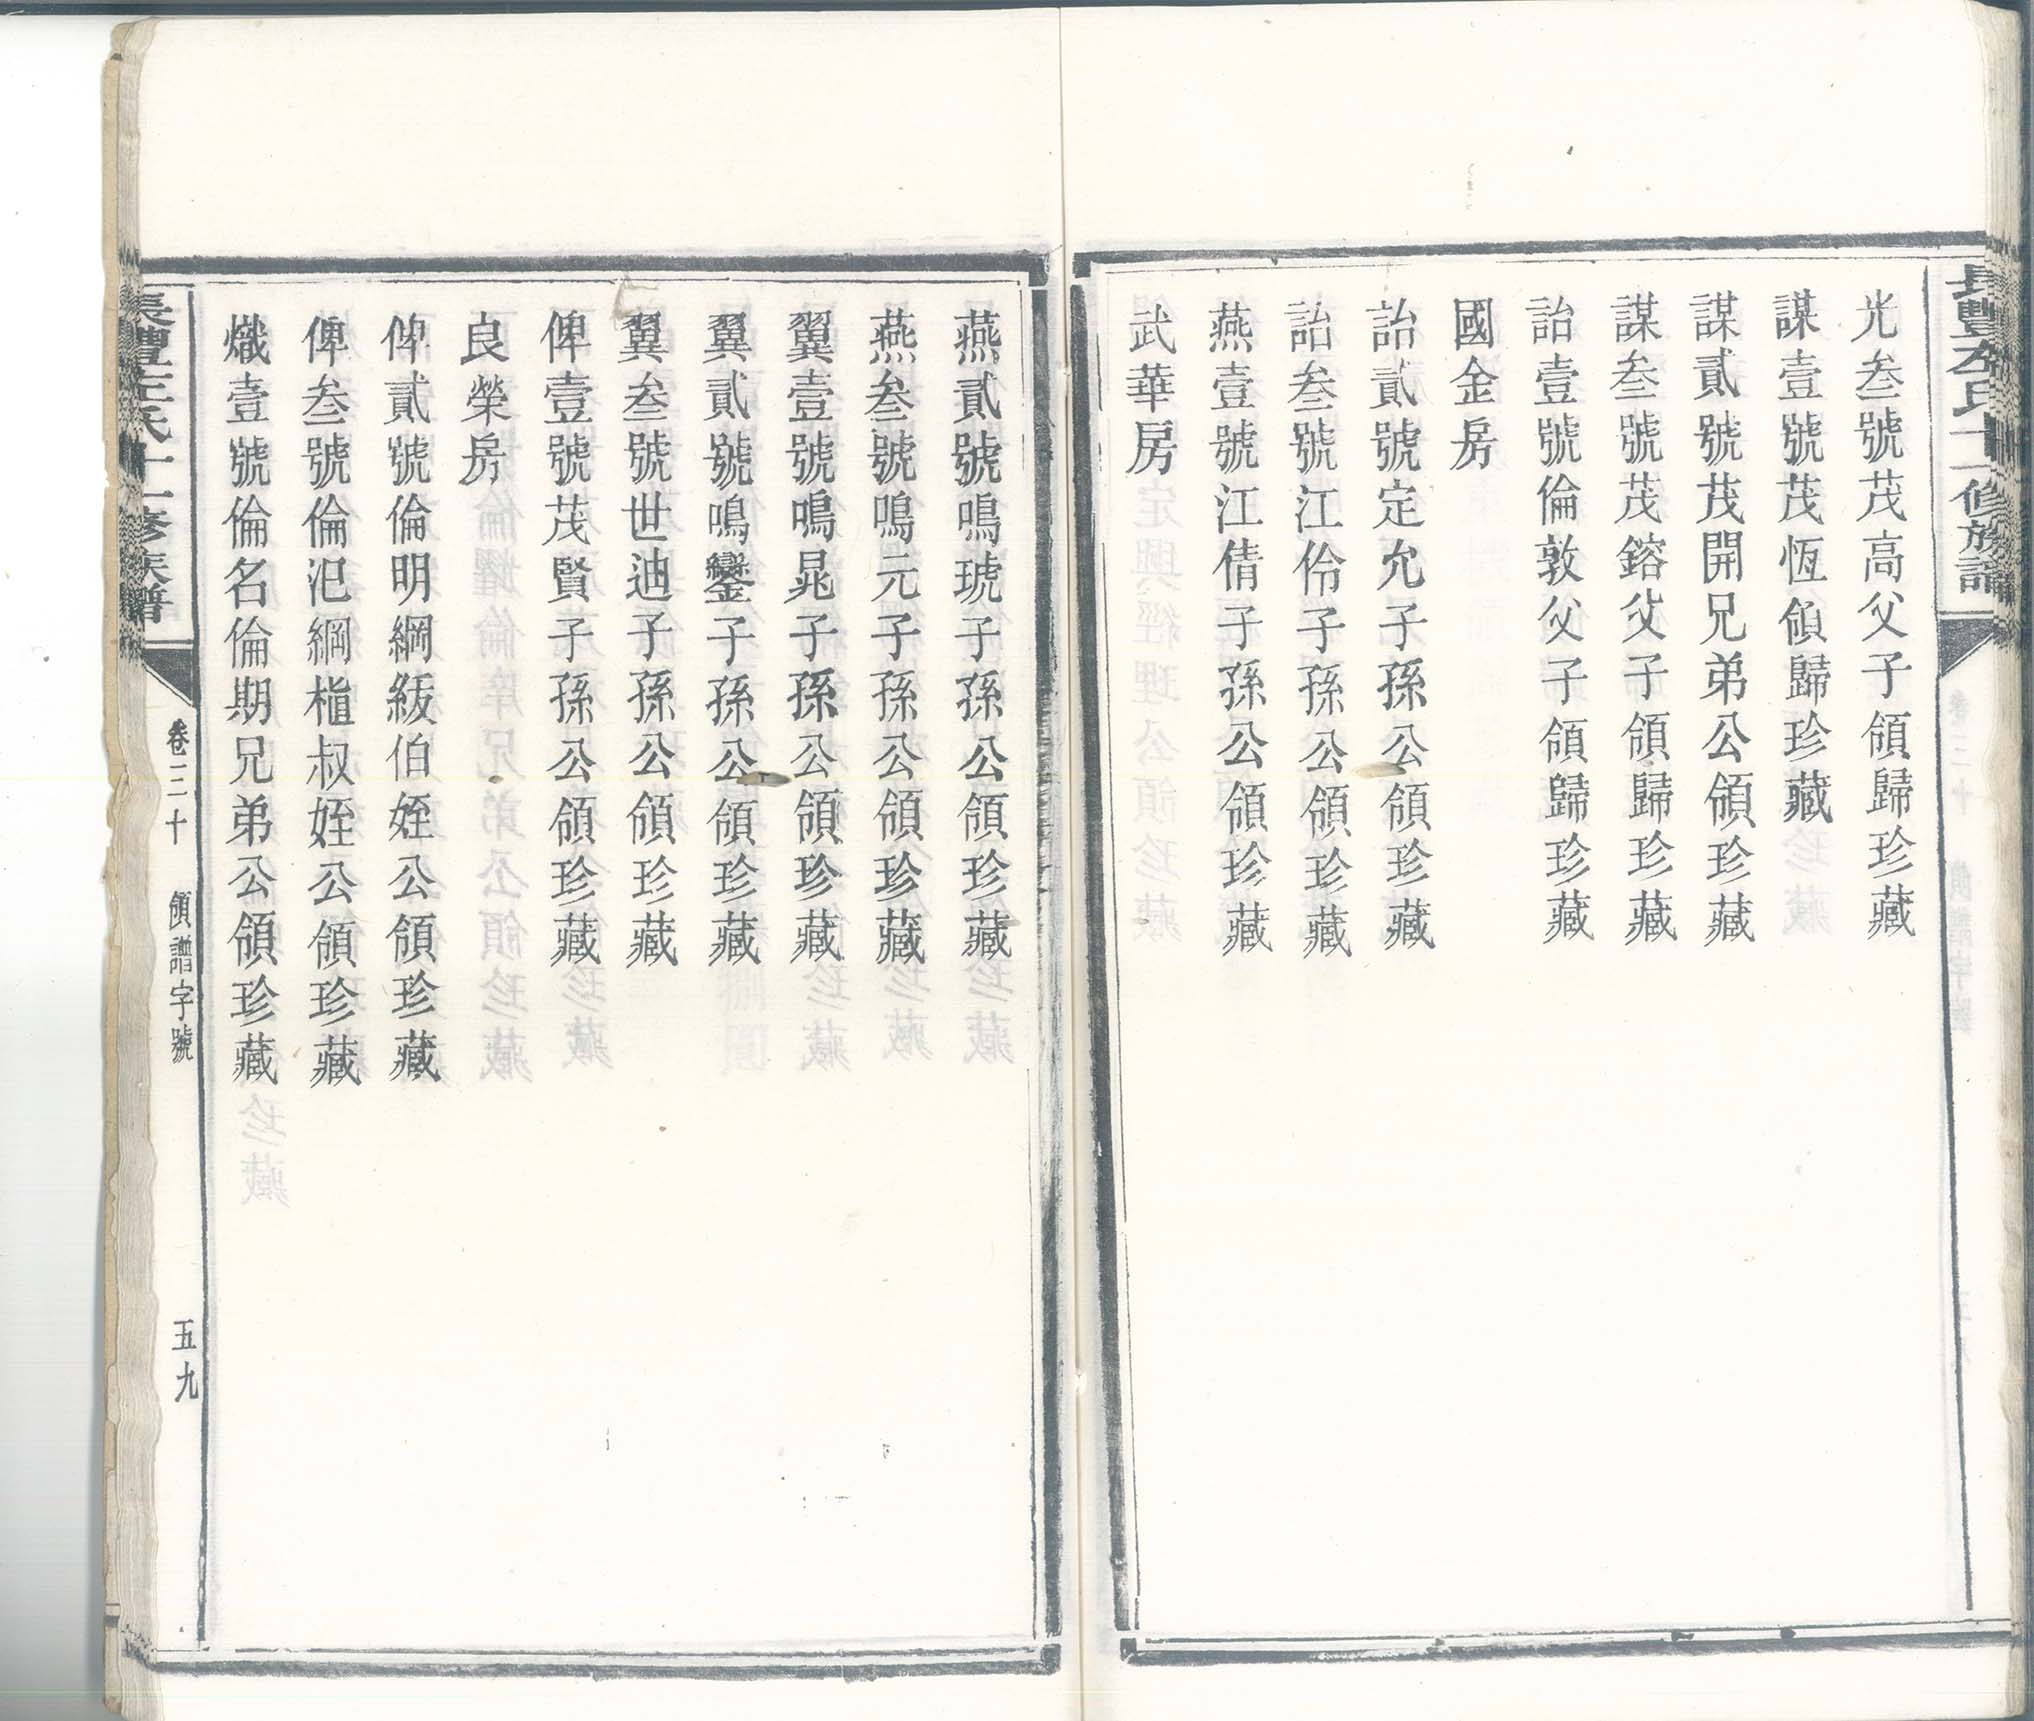 長豐左氏十一修族譜
光叁號茂高父子領歸珍藏
謀壹號茂恆領歸珍藏
謀貳號茂開兄弟公領珍藏
謀叁號茂鎔父子領歸珍藏
詒壹號倫敦父子領歸珍藏
國金房
詒貳號定允子孫公領珍藏
詒叁號江伶子孫公領珍藏
燕壹號江倩子孫公領珍藏
武華房
燕貳號鳴琥子孫公領珍藏
燕叁號鳴元子孫公領珍藏
翼壹號鳴晁子孫公領珍藏
翼貳號鳴鑾子孫公領珍藏
翼叁號世迪子孫公領珍藏
俾壹號茂賢子孫公領珍藏
良榮房
俾貳號倫明綱紱伯姪公領珍藏
俾叁號倫汜綱楦叔姪公領珍藏
熾壹號倫名倫期兄弟公領珍藏
長豐左氏十一修族譜
卷三十
領譜字號
五九